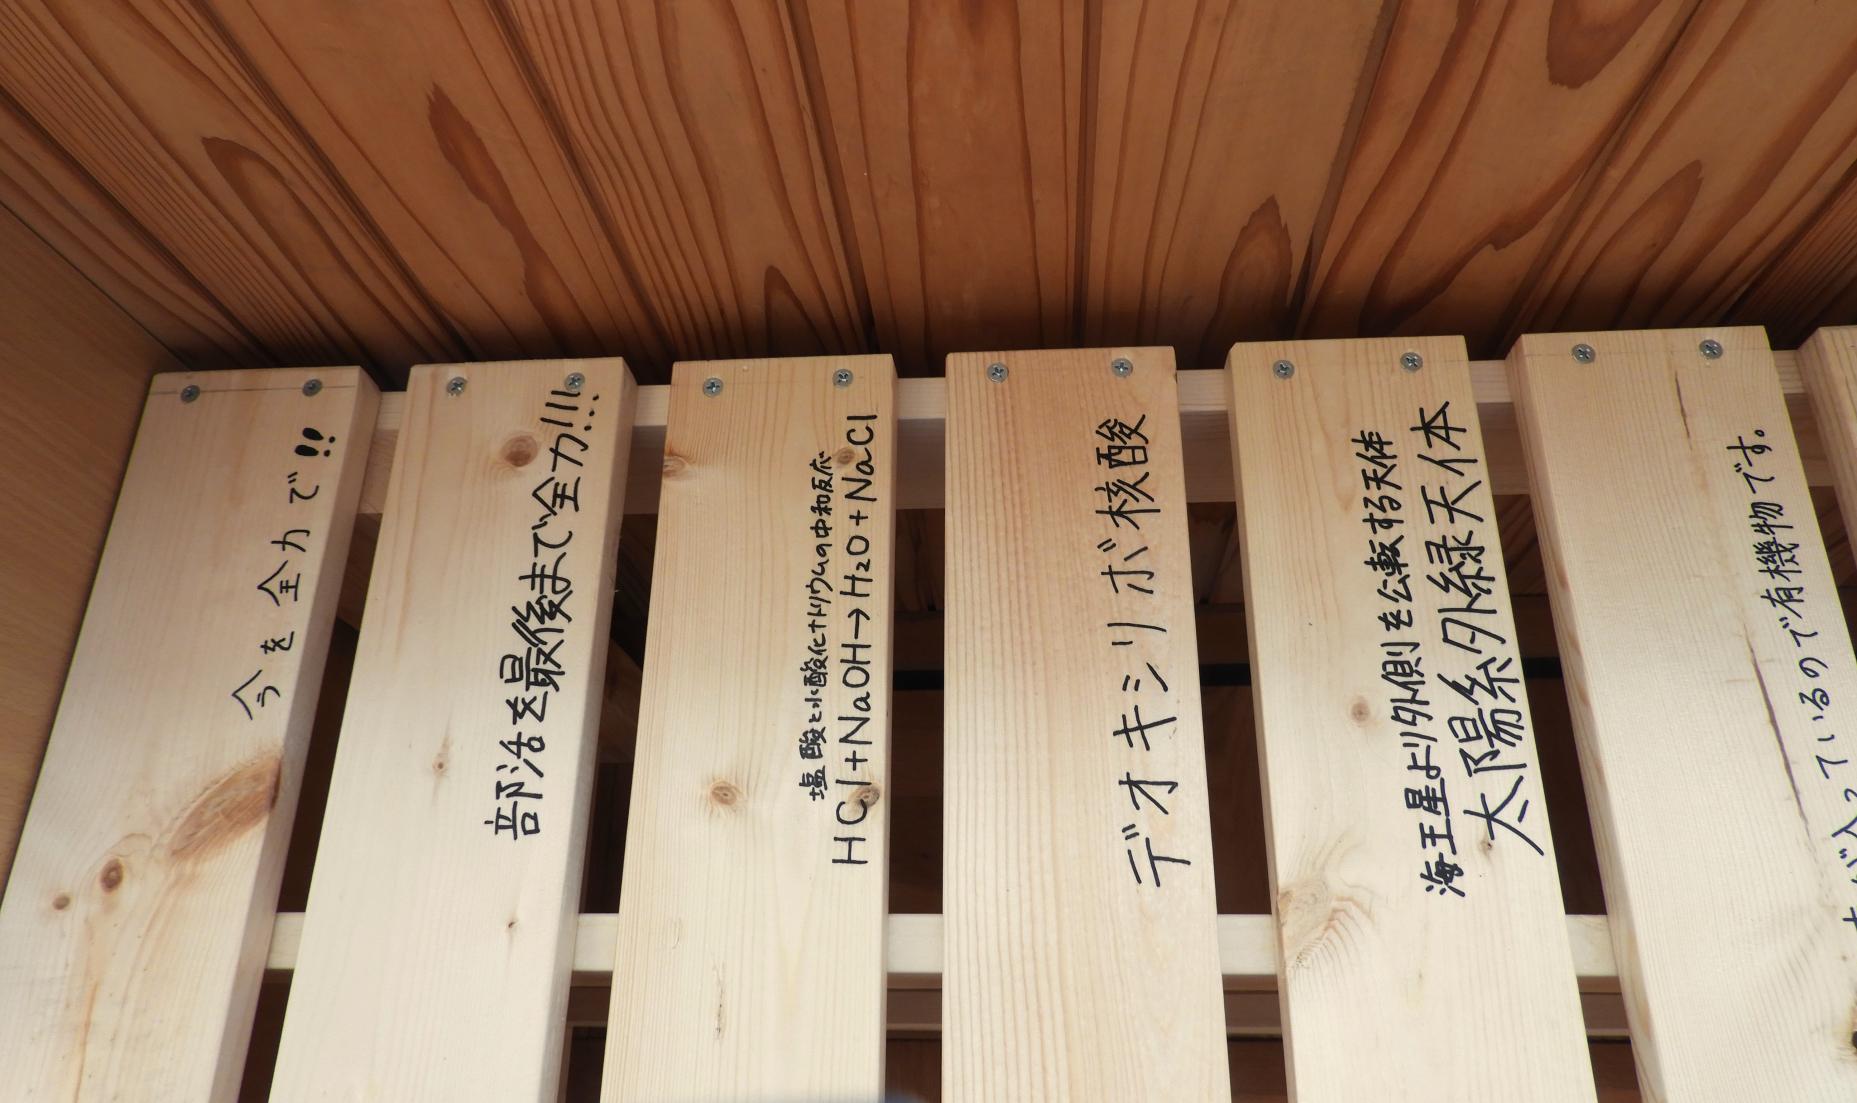 今を全力で!!
部活を最後まで全力!!!
塩酸と水酸化ナトリウムの中和反応
HCl+NaOH→H₂O+NaCl
デオキシリボ核酸
海王星より外側を公転する天体
太陽系外縁天体
が入っているので有機物です。